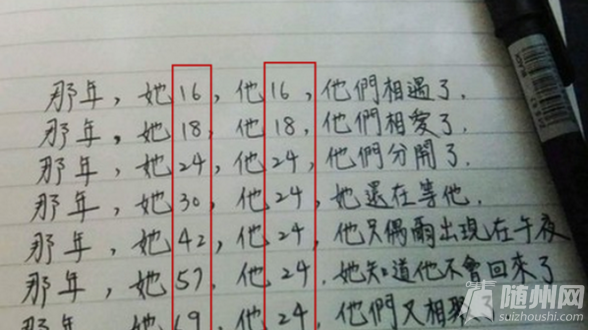 那年，她16，他16，他們相遇了.
那年，她18，他18，他們相愛了.
那年，她24，他24，他們分開了.
那年，她30，他24，她還在等他.
那年，她42，他24，他只偶爾出現在午夜
那年，她57，他24，她知道他不會回來了
那年，她69，他24，他們又相聚
随州网
suizhoushi.com